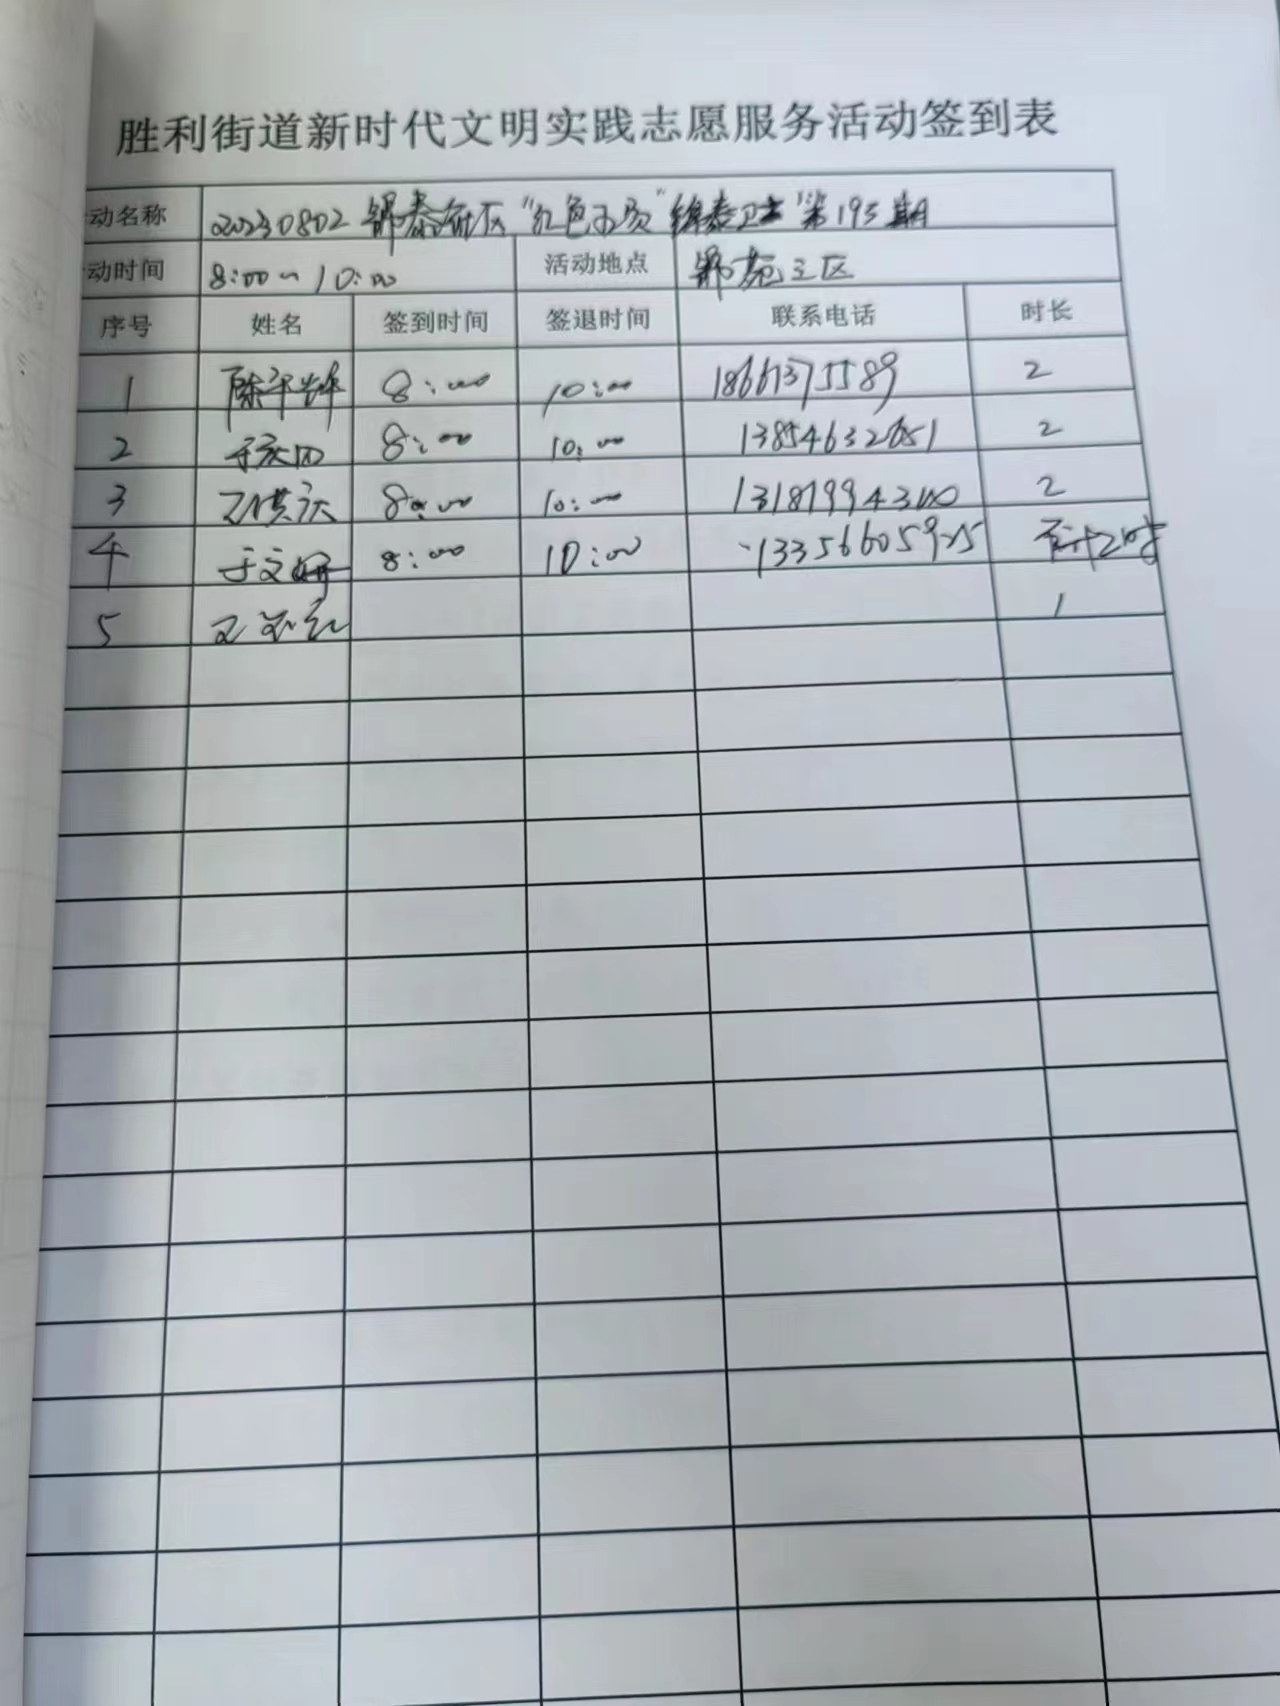 胜利街道新时代文明实践志愿服务活动签到表
动名称 20230802 锦泰社区 "红色 "锦泰卫士"第195期
动时间 8:00~10:00 活动地点 锦苑三区
序号 姓名 签到时间 签退时间 联系电话 时长
1 8:00 10:00 18661375589 2
2 于庆田 8:00 10:00 13854632651 2
3 8:00 10:00 13181994300 2
4 于文 8:00 10:00 13356605925 2
5 王 1